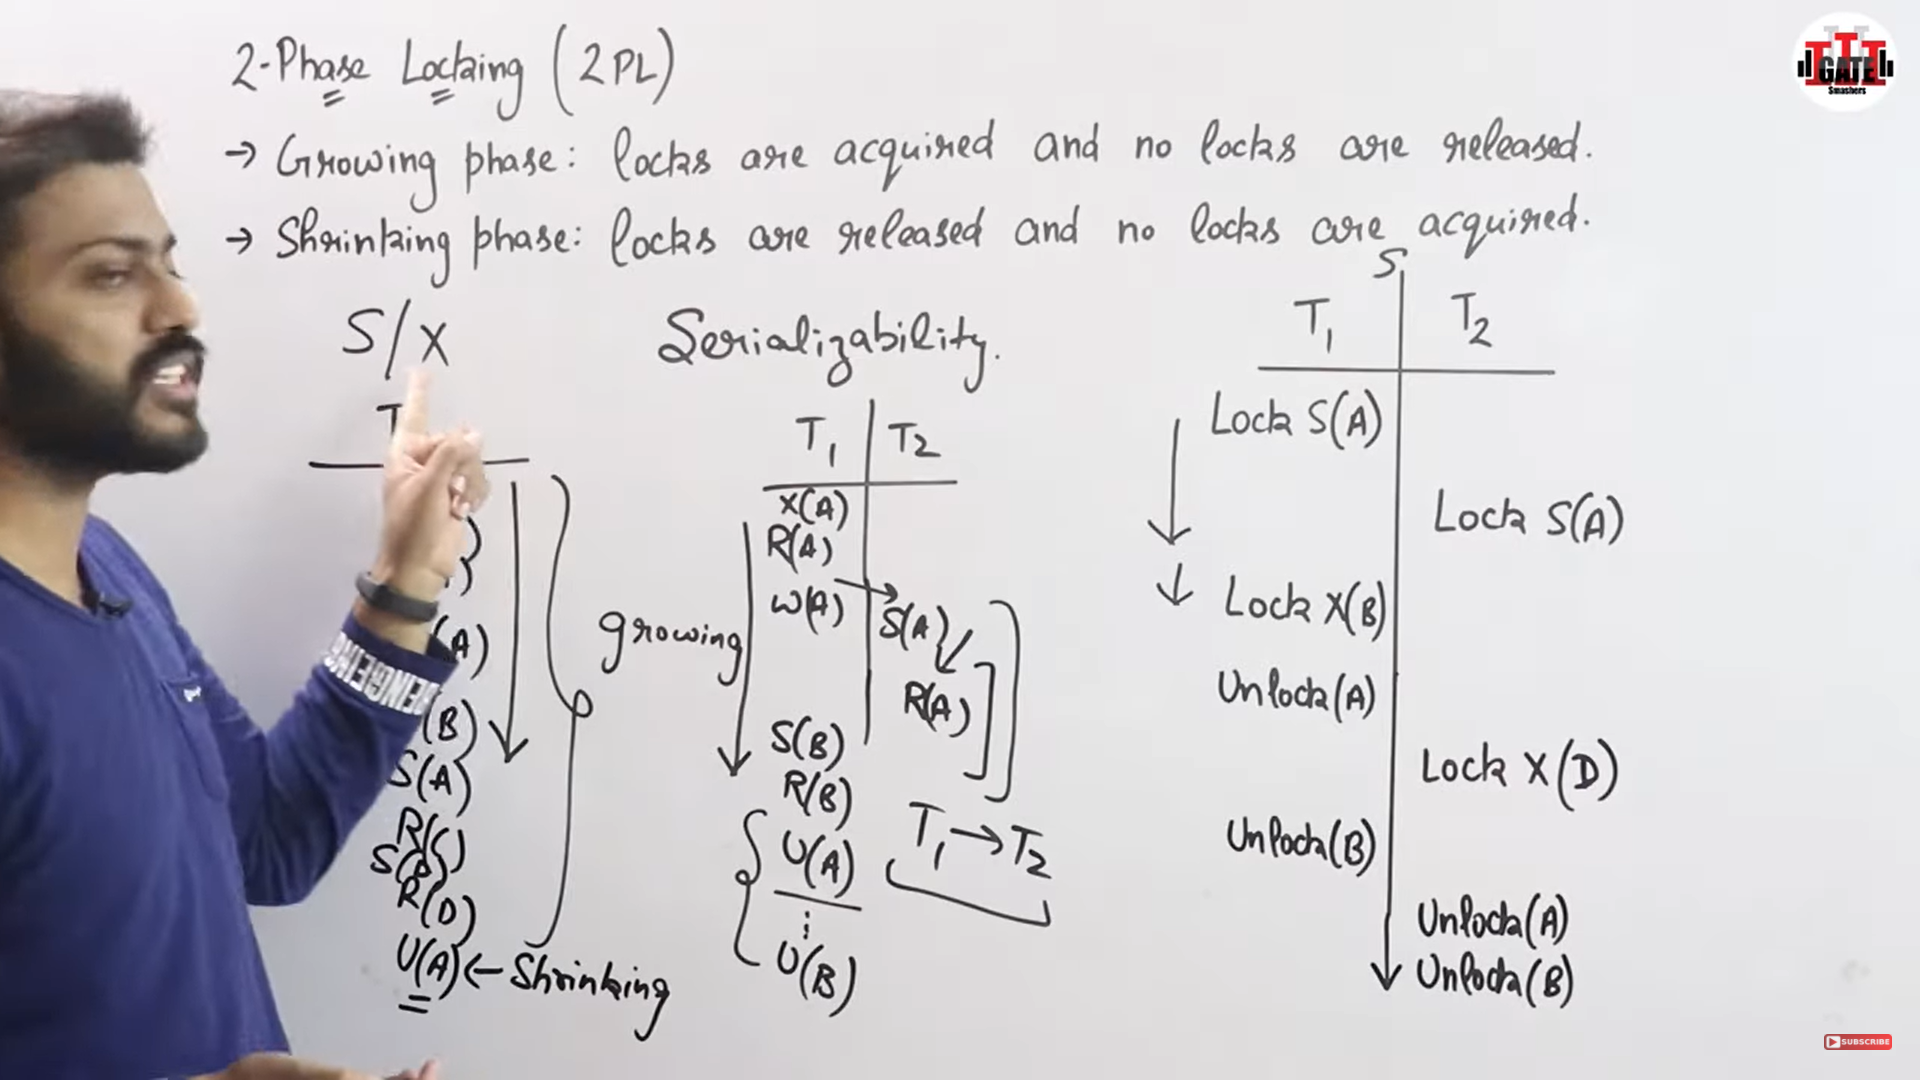 2-Phase Locking (2PL)
→ Growing phase: locks are acquired and no locks are released.
→ Shrinking phase: locks are released and no locks are acquired.
S/X
T
(A)
(B)
S(A)
R(C)
S(D)
R(D)
U(A) ← Shrinking
growing
Serializability.
T1 T2
X(A)
R(A)
W(A)
S(A)
R(A)
S(B)
R(B)
U(A)
⋮
U(B)
T1 → T2
S
T1 T2
Lock S(A)
Lock S(A)
Lock X(B)
Unlock(A)
Lock X(D)
Unlock(B)
Unlock(A)
Unlock(B)
GATE
Smashers
SUBSCRIBE